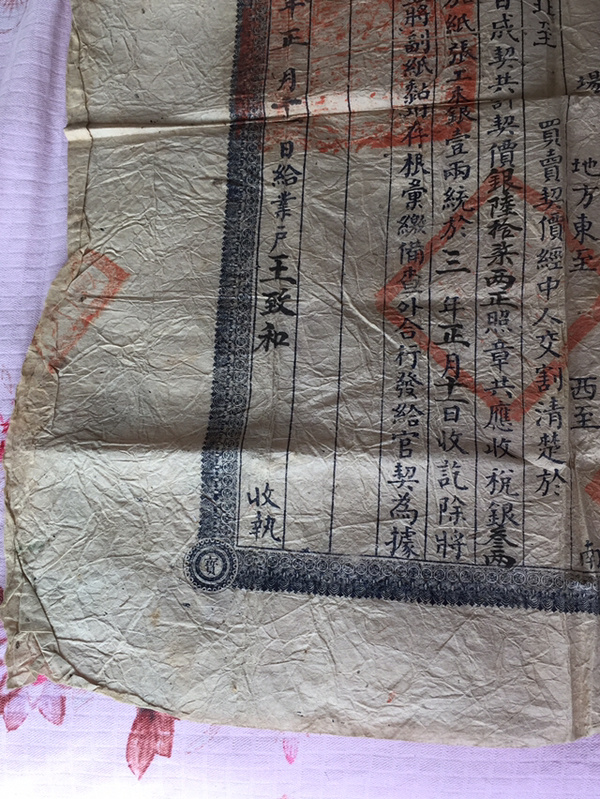 場　地方東至　西至　南
買賣契價經中人交割清楚於
北至
日成契共計契價銀陸拾柒兩正照章共應收稅銀叁兩
紙張工本銀壹兩統於三年正月十日收訖除將
將副紙黏附存根彙繳備查外合行發給官契為據
年正月十日給業戶王致和
收執
寶